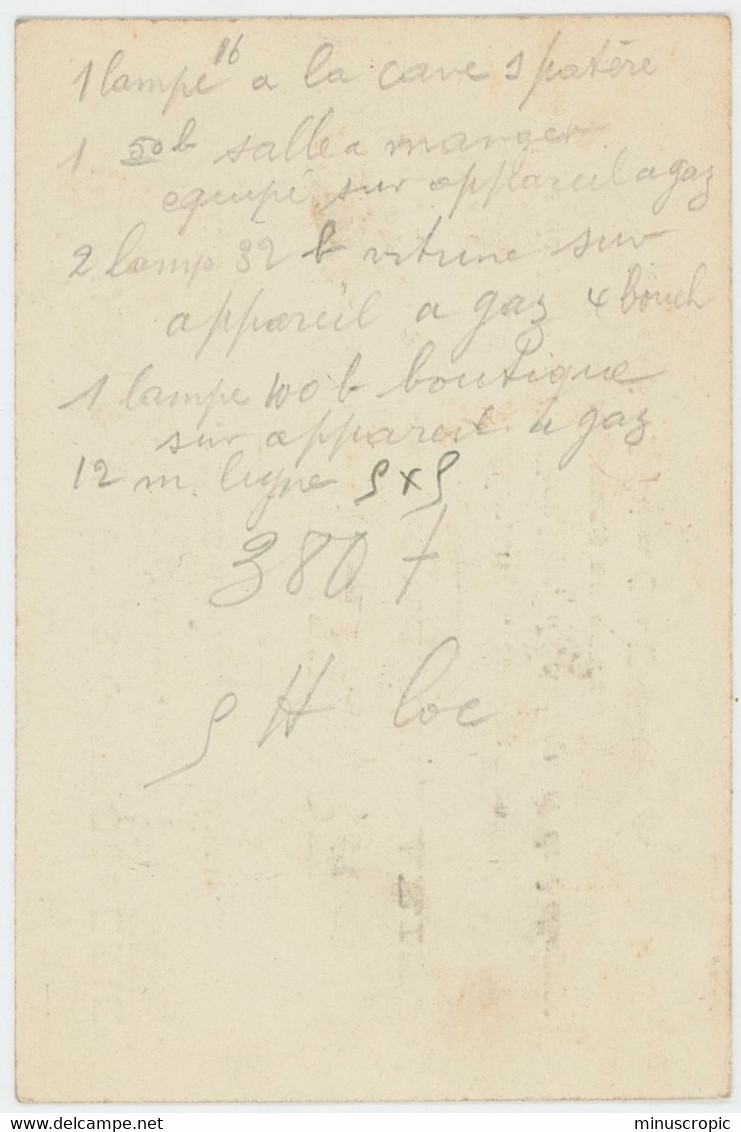 1 lampe 16 a la cave 1 patère
1 50 b salle a manger
equipé sur appareil a gaz
2 lamp 32 b vitrine sur
appareil a gaz 4 bouch
1 lampe 100 b boutique
sur appareil a gaz
12 m ligne 5 x 5
380 f
5 H loc
www.delcampe.net
minuscropic